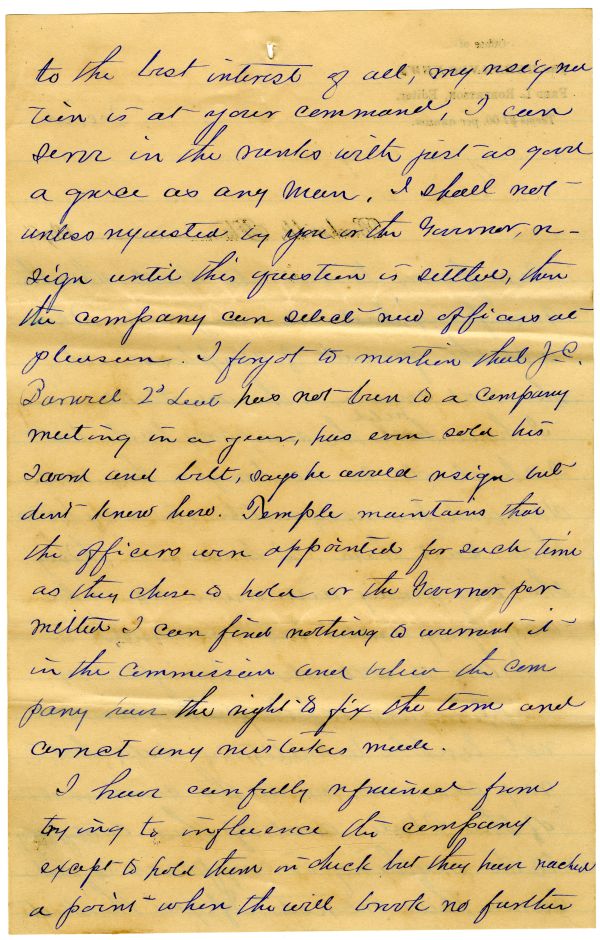 to the best interest of all, my resigna
tion is at your command, I can
serve in the ranks with just as good
a grace as any man. I shall not
unless requested by you or the Governor, re-
sign until this question is settled, then
the company can select new officers at
pleasure. I forgot to mention that J. C.
2d Leut has not been to a company
meeting in a year, has even sold his
sword and belt, says he would resign but
dont know how. Temple maintains that
the officers were appointed for such time
as they chose to hold or the Governor per
mitted I can find nothing to warrant it
in the Commission and believe the com
pany have the right to fix the term and
correct any mistakes made.
I have carefully refrained from
trying to influence the company
except to hold them in check but they have reached
a point when the will brook no further